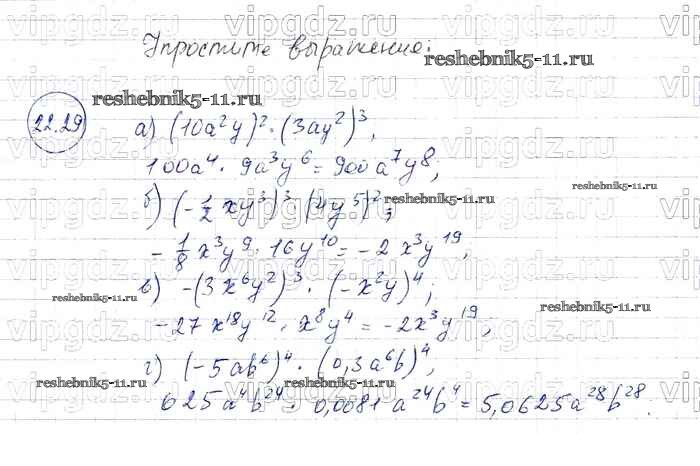 Упростите выражение:
reshebnik5-11.ru
reshebnik5-11.ru
22.29
а) (10a²y)² · (3ay²)³,
100a⁴ · 9a³y⁶ = 900a⁷y8;
reshebnik5-11.ru
б) (-1/2 xy³)³ · (4y⁵)²;
- 1/8 x³y⁹ · 16y¹⁰ = -2x³y¹⁹,
в) -(3x⁶y²)³ · (-x²y)⁴;
reshebnik5-11.ru
reshebnik5-11.ru
-27x¹⁸y¹² · x⁸y⁴ = -2x³y¹⁹;
г) (-5ab⁶)⁴ · (0,3a⁶b)⁴,
reshebnik5-11.ru
reshebnik5-11.ru
625a⁴b²⁴ · 0,0081a²⁴b⁴ = 5,0625a²⁸b²⁸.